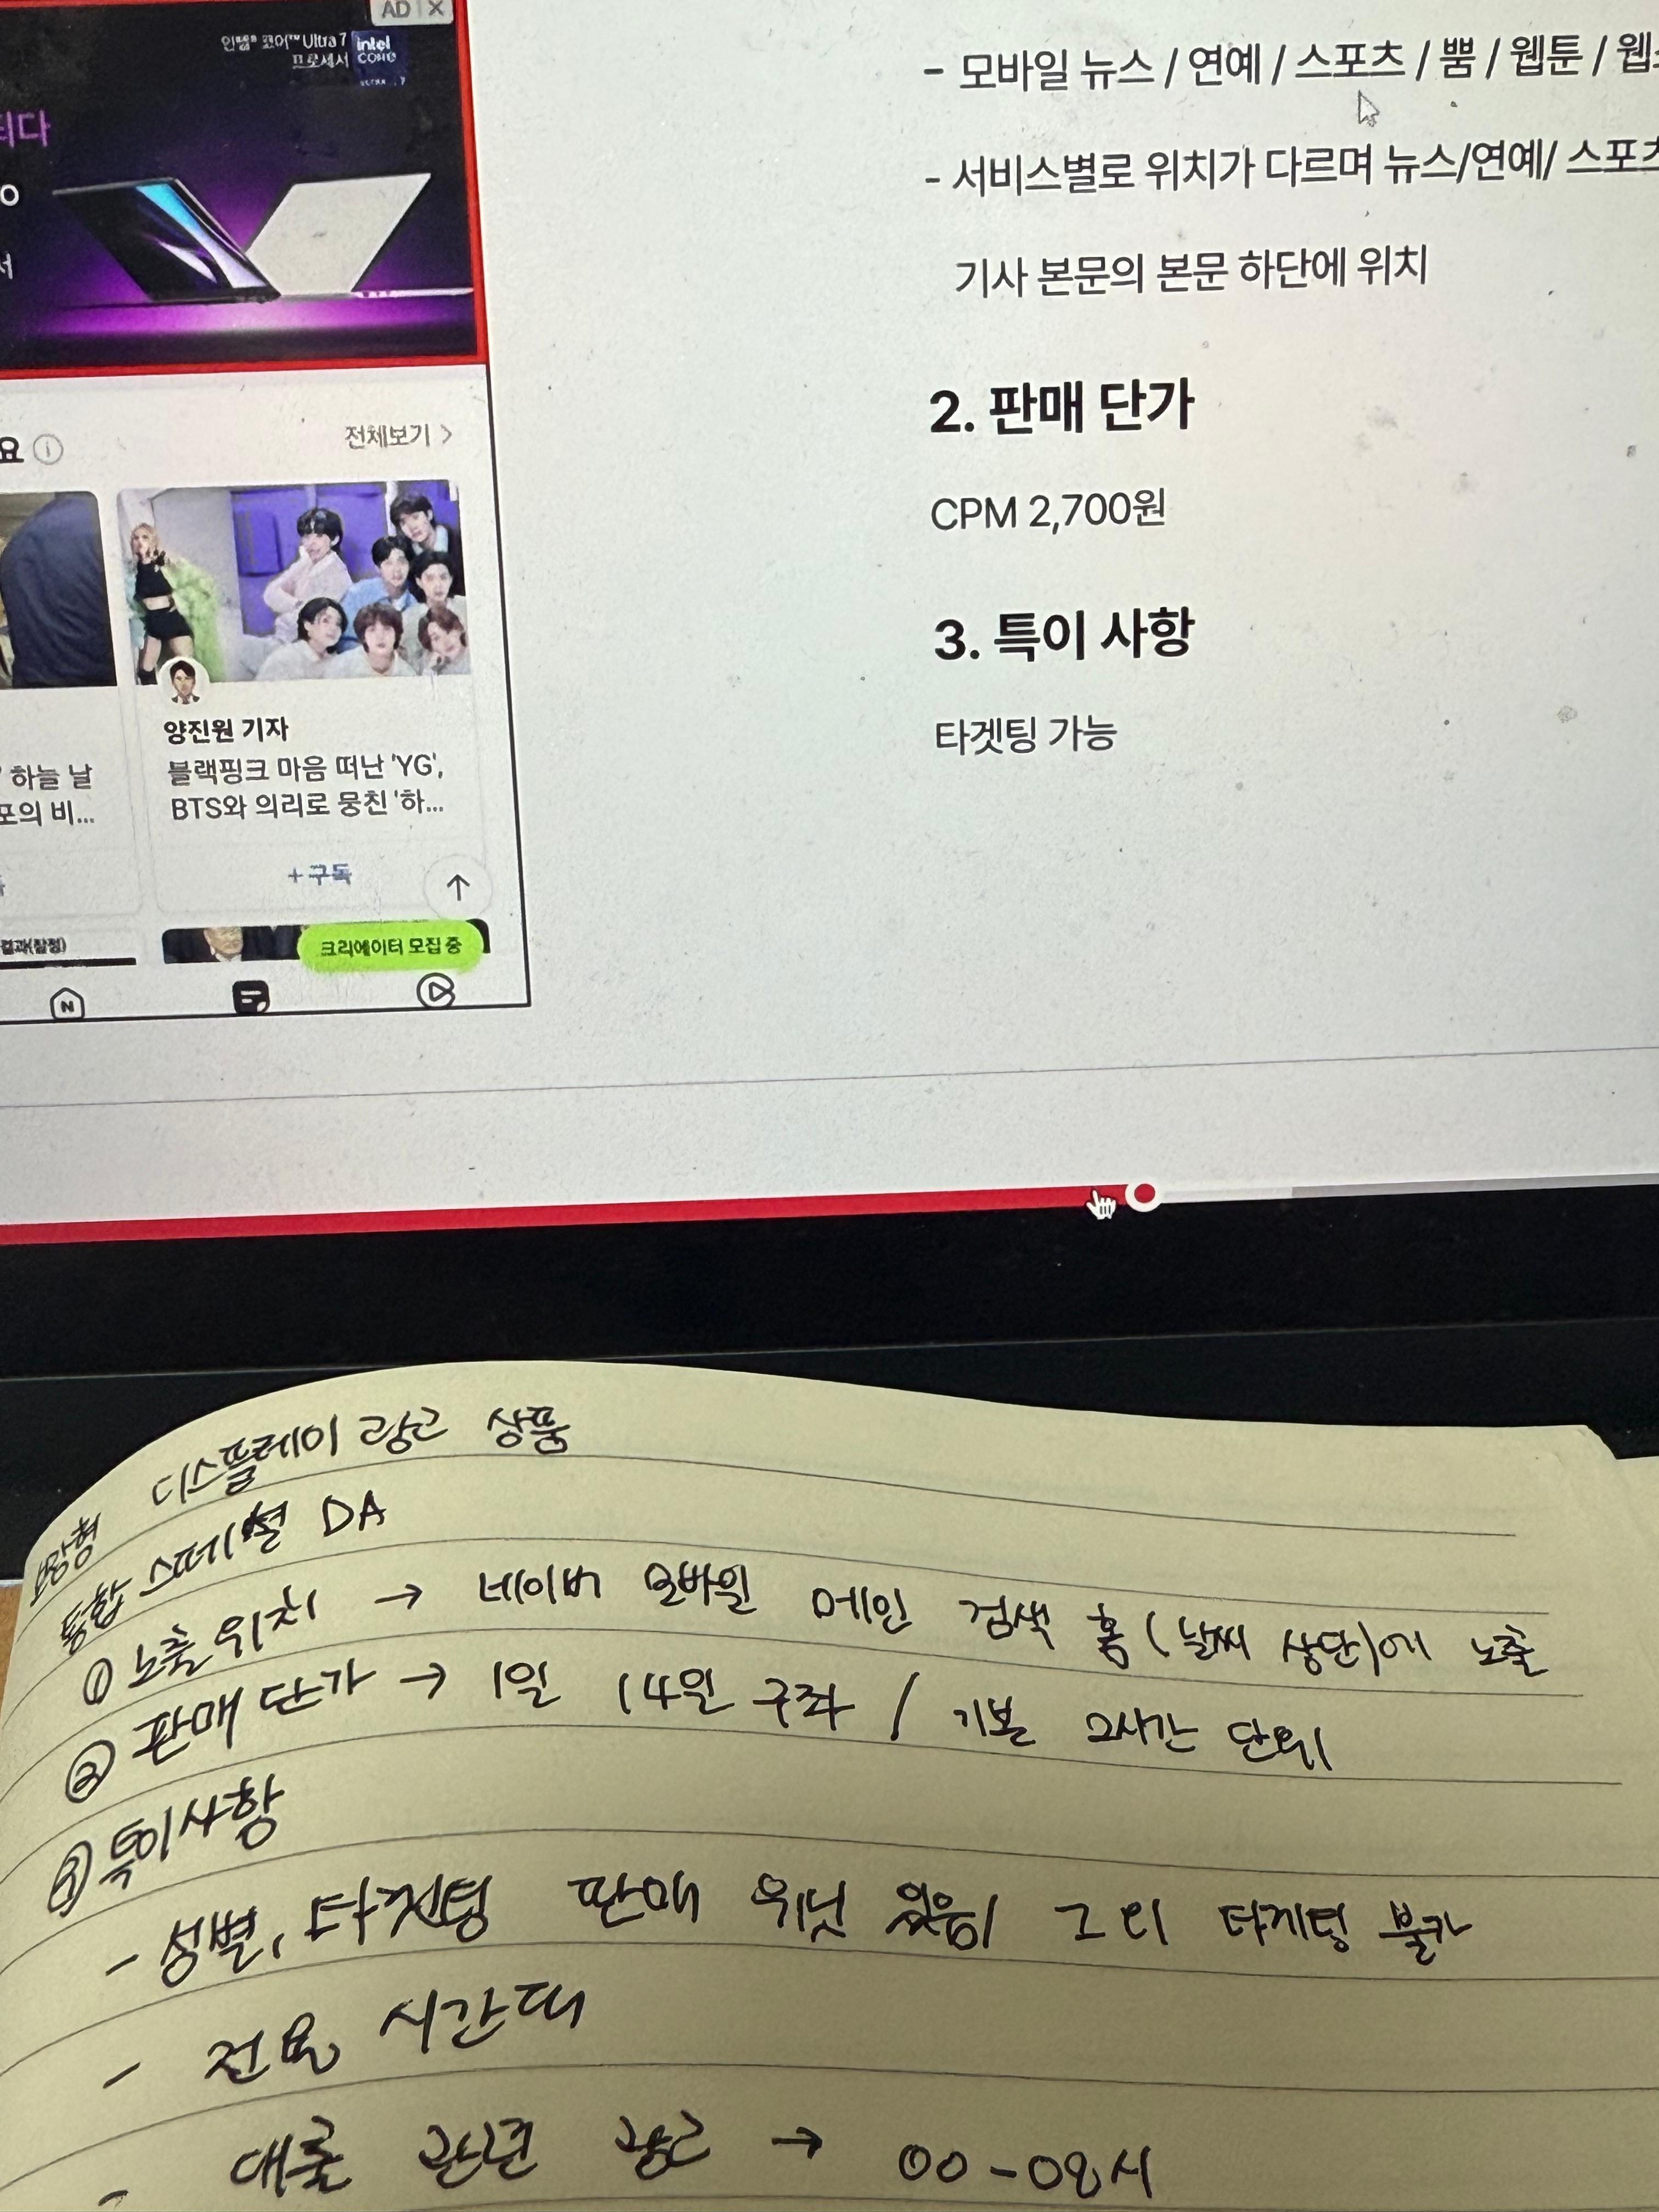 AD X
인텔® 코어™ Ultra 7
프로세서
intel
CORE
되다
- 모바일 뉴스 / 연예 / 스포츠 / 뿜 / 웹툰 /
- 서비스별로 위치가 다르며 뉴스/연예/ 스포츠
기사 본문의 본문 하단에 위치
2. 판매 단가
CPM 2,700원
3. 특이 사항
타겟팅 가능
요
전체보기 >
양진원 기자
블랙핑크 마음 떠난 'YG',
BTS와 의리로 뭉친 '하...
하늘 날
포의 비...
+ 구독
크리에이터 모집 중
N
디스플레이 광고 상품
보장형
통합 스페셜 DA
① 노출위치 → 네이버 모바일 메인 검색 홈 (날씨 상단)에 노출
② 판매 단가 → 1일 14일 구좌 / 기본 2시간 단위
③ 특이사항
- 성별, 타겟팅 판매 위닛 있음 그 외 타게팅 불가
- 전용 시간대
- 대출 관련 광고 → 00-08시